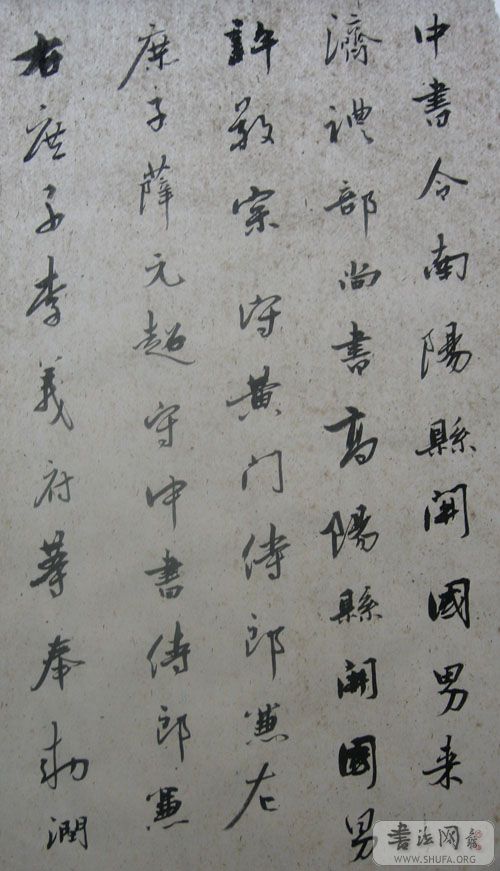 中書令南陽縣開國男来
濟禮部尚書高陽縣開國男
許敬宗守黄门侍郎兼左
庶子薛元超守中書侍郎兼
右庶子李義府等奉勅潤
書法网
WWW.SHUFA.ORG